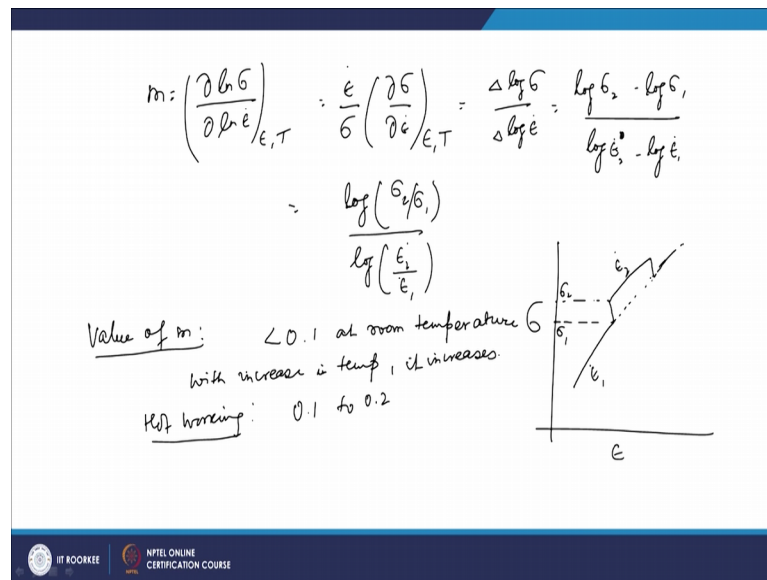 m: (∂ ln σ / ∂ ln ε̇)ε,T = ε̇/σ (∂σ/∂ε̇)ε,T = Δ log σ / Δ log ε̇ = log σ₂ - log σ₁ / log ε̇₂ - log ε̇₁
= log (σ₂/σ₁) / log (ε̇₂/ε̇₁)
Value of m: <0.1 at room temperature
with increase in temp, it increases.
Hot working: 0.1 to 0.2
σ
σ₂
σ₁
ε̇₂
ε̇₁
ε
IIT ROORKEE
NPTEL ONLINE
CERTIFICATION COURSE